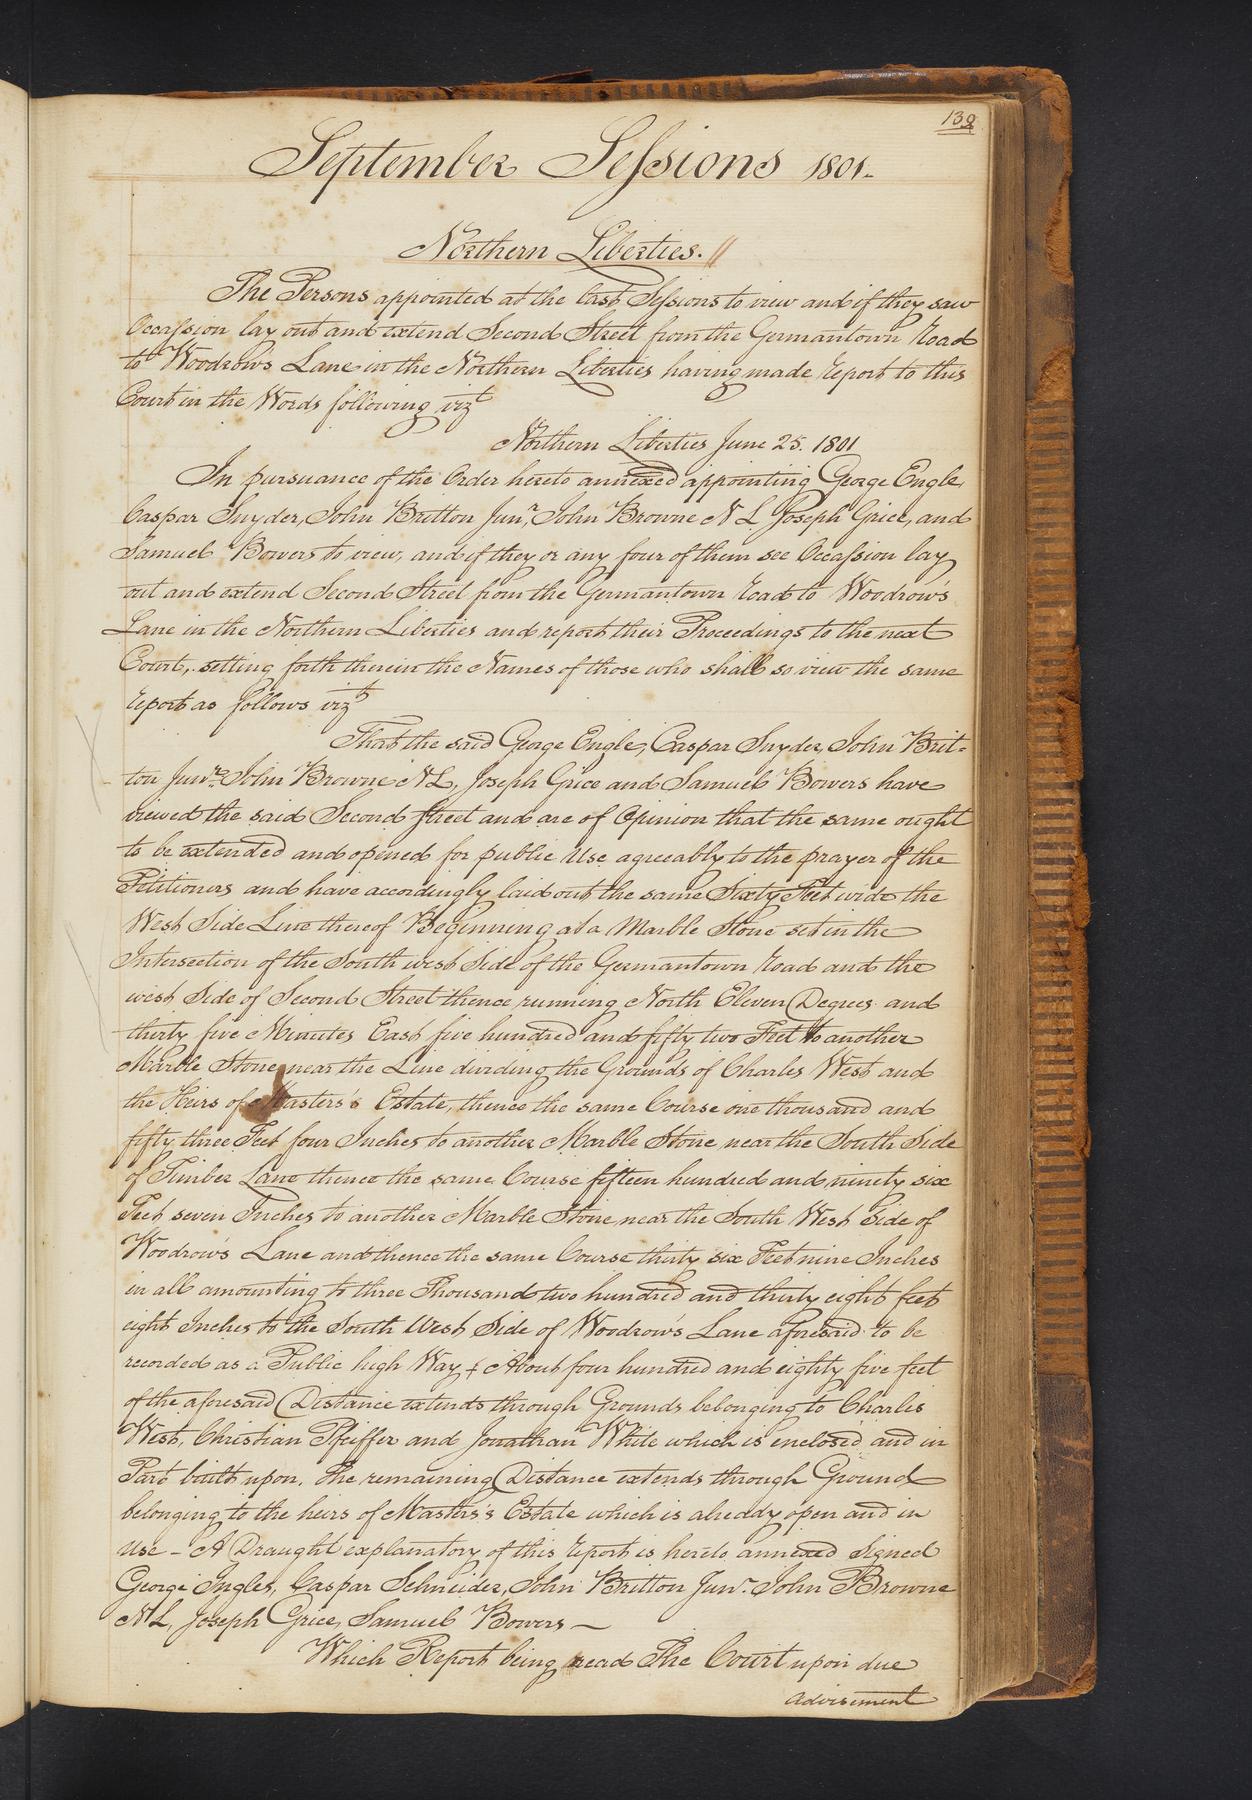 139
September Sessions 1801.
Northern Liberties. //
The Persons appointed at the last Sessions to view and if they saw
Occassion lay out and extend Second Street from the Germantown Road
to Woodrows Lane in the Northern Liberties having made Report to this
Court in the Words following vizt
Northern Liberties June 25. 1801
In pursuance of the Order hereto annexed appointing George Engle,
Caspar Snyder, John Britton Junr, John Browne N L Joseph Grice, and
Samuel Bowers to view, and if they or any four of them see Occassion lay
out and extend Second Street from the Germantown Road to Woodrow's
Lane in the Northern Liberties and report their Proceedings to the next
Court, setting forth therein the Names of those who shall so view the same
report as follows vizt
That the said George Engle, Caspar Snyder, John Brit-
ton Junr. John Browne N L, Joseph Grice and Samuel Bowers have
viewed the said Second Street and are of Opinion that the same ought
to be extended and opened for public Use agreeably to the prayer of the
Petitioners and have accordingly laid out the same Sixty Feet wide the
West Side Line thereof Beginning at a Marble Stone set in the
Intersection of the South west Side of the Germantown Road and the
west Side of Second Street thence running North Eleven Degrees and
thirty five Minutes East five hundred and fifty two Feet to another
Marble Stone near the Line dividing the Grounds of Charles West and
the Heirs of Masters's Estate, thence the same Course one thousand and
fifty three Feet four Inches to another Marble Stone near the South Side
of Timber Lane thence the same Course fifteen hundred and ninety six
Feet seven Inches to another Marble Stone near the South West Side of
Woodrow's Lane and thence the same Course thirty six Feet nine Inches
in all amounting to three Thousand two hundred and thirty eight feet
eight Inches to the South West Side of Woodrow's Lane aforesaid to be
recorded as a Public high Way + About four hundred and eighty five feet
of the aforesaid Distance extends through Grounds belonging to Charles
West, Christian Pfeiffer and Jonathan White which is enclosed and in
Part built upon. the remaining Distance extends through Ground
belonging to the heirs of Masters's Estate which is already open and in
Use - A Draught explanatory of this report is hereto annexed Signed
George Ingles, Caspar Schneider, John Britton Junr. John Browne
N L, Joseph Grice, Samuel Bowers —
Which Report being read The Court upon due
Advisement